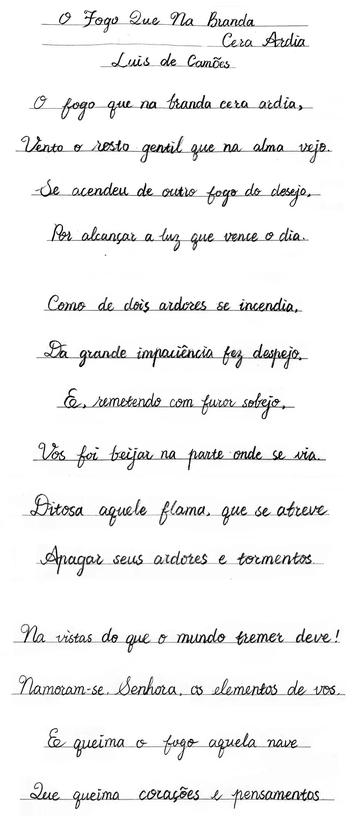 O Fogo Que Na Branda
Cera Ardia
Luis de Camões
O fogo que na branda cera ardia,
Vento o rosto gentil que na alma vejo.
Se acendeu de outro fogo do desejo,
Por alcançar a luz que vence o dia.
Como de dois ardores se incendia,
Da grande impaciência fez despejo.
E, remetendo com furor sobejo,
Vos foi beijar na parte onde se via.
Ditosa aquele flama, que se atreve
Apagar seus ardores e tormentos
Na vistas do que o mundo tremer deve!
Namoram-se, Senhora, os elementos de vos,
E queima o fogo aquela nave
Que queima corações e pensamentos